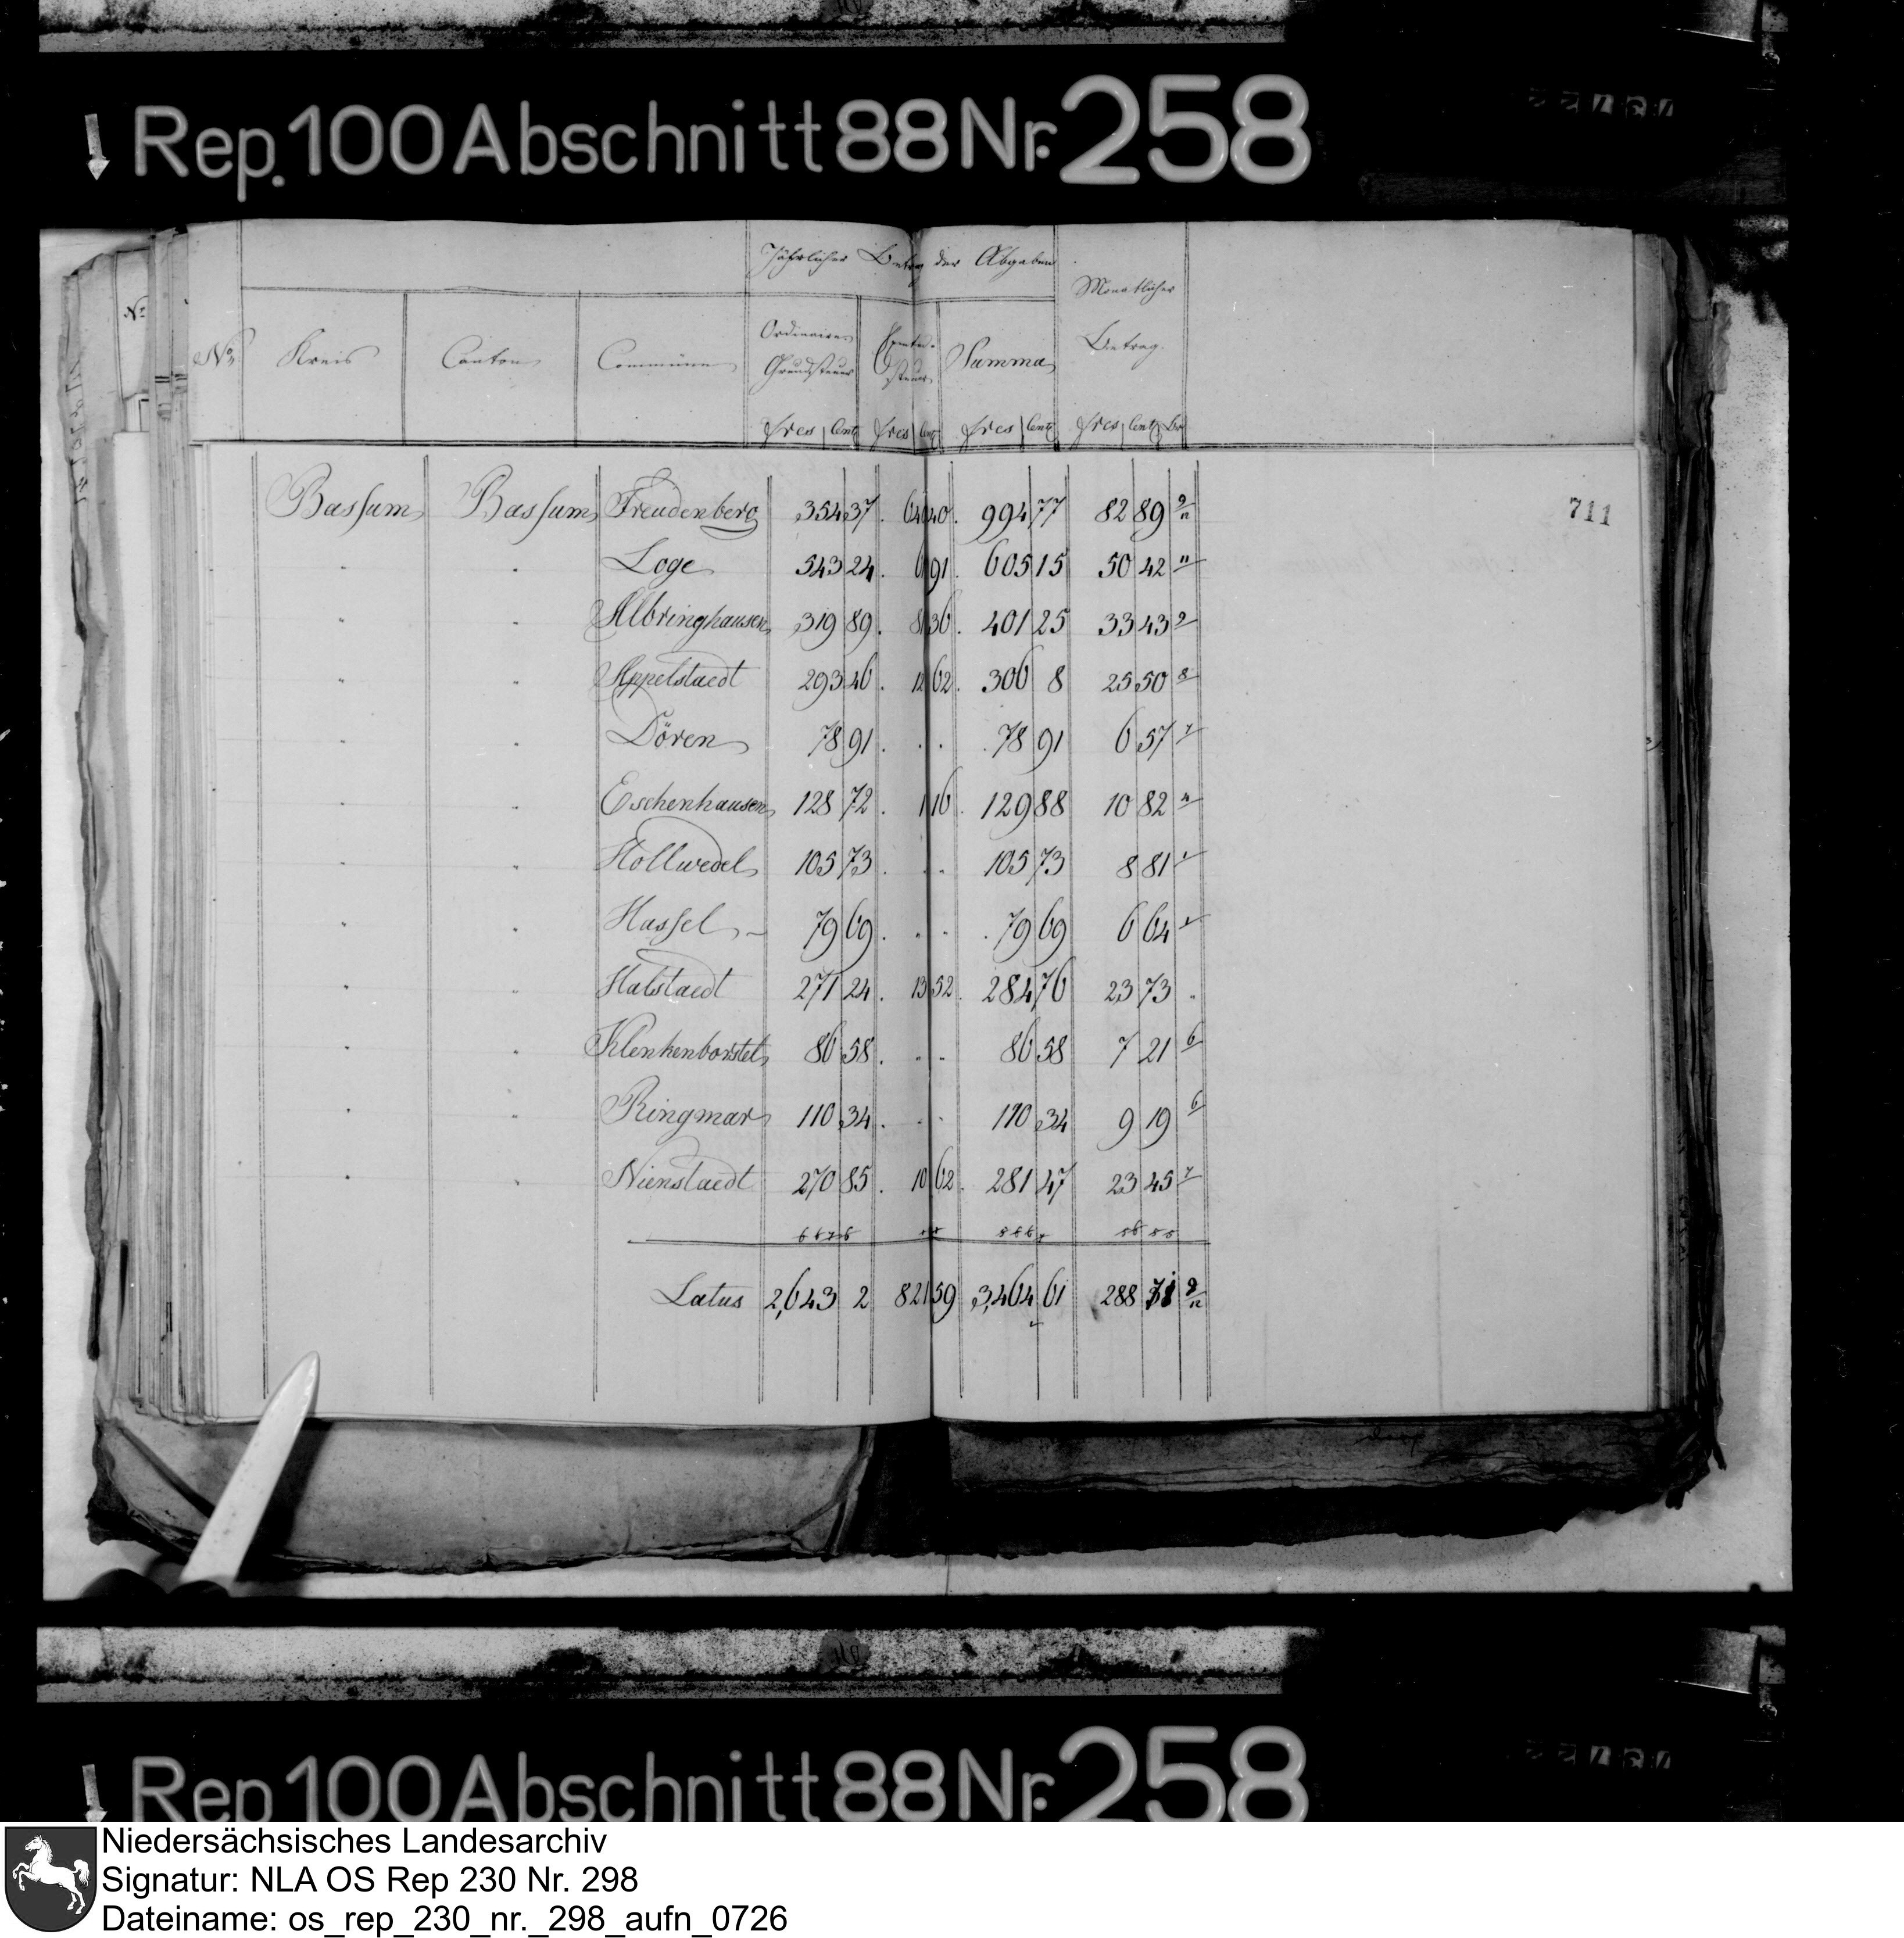 Rep. 100 Abschnitt 88 Nr. 258
Jährlicher Betrag der Abgaben
Monatlicher
Betrag.
No. Kreis Canton Commünen Ordinaire Grundsteuer steuer Summa
frcs Cent frcs Cent frcs Cent frcs Cent
Bassum Bassum Freudenberg 354 37. 640 40. 994 77 82 89 9/12
" " Loge 543 24. 61 91. 605 15 50 42 11
" " Albringhausen 319 89. 81 36. 401 25 33 43 9
" " Appelstaedt 293 46. 12 62. 306 8 25 50 8
" " Dören 78 91. . . 78 91 6 57 7
" " Eschenhausen 128 72. 1 16. 129 88 10 82 4
" " Hollwedel 105 73. . . 105 73 8 81 1
" " Hassel 79 69. . . 79 69 6 64 1
" " Halstaedt 271 24. 13 52. 284 76 23 73 "
" " Klenkenborstel 86 58. . . 86 58 7 21 6
" " Ringmar 110 34. . . 110 34 9 19 6
" " Nienstaedt 270 85. 10 62. 281 47 23 45 7
Latus 2,643 2 821 59 3,464 61 288 71 9/12
711
Rep 100 Abschnitt 88 Nr. 258
Niedersächsisches Landesarchiv
Signatur: NLA OS Rep 230 Nr. 298
Dateiname: os_rep_230_nr._298_aufn_0726